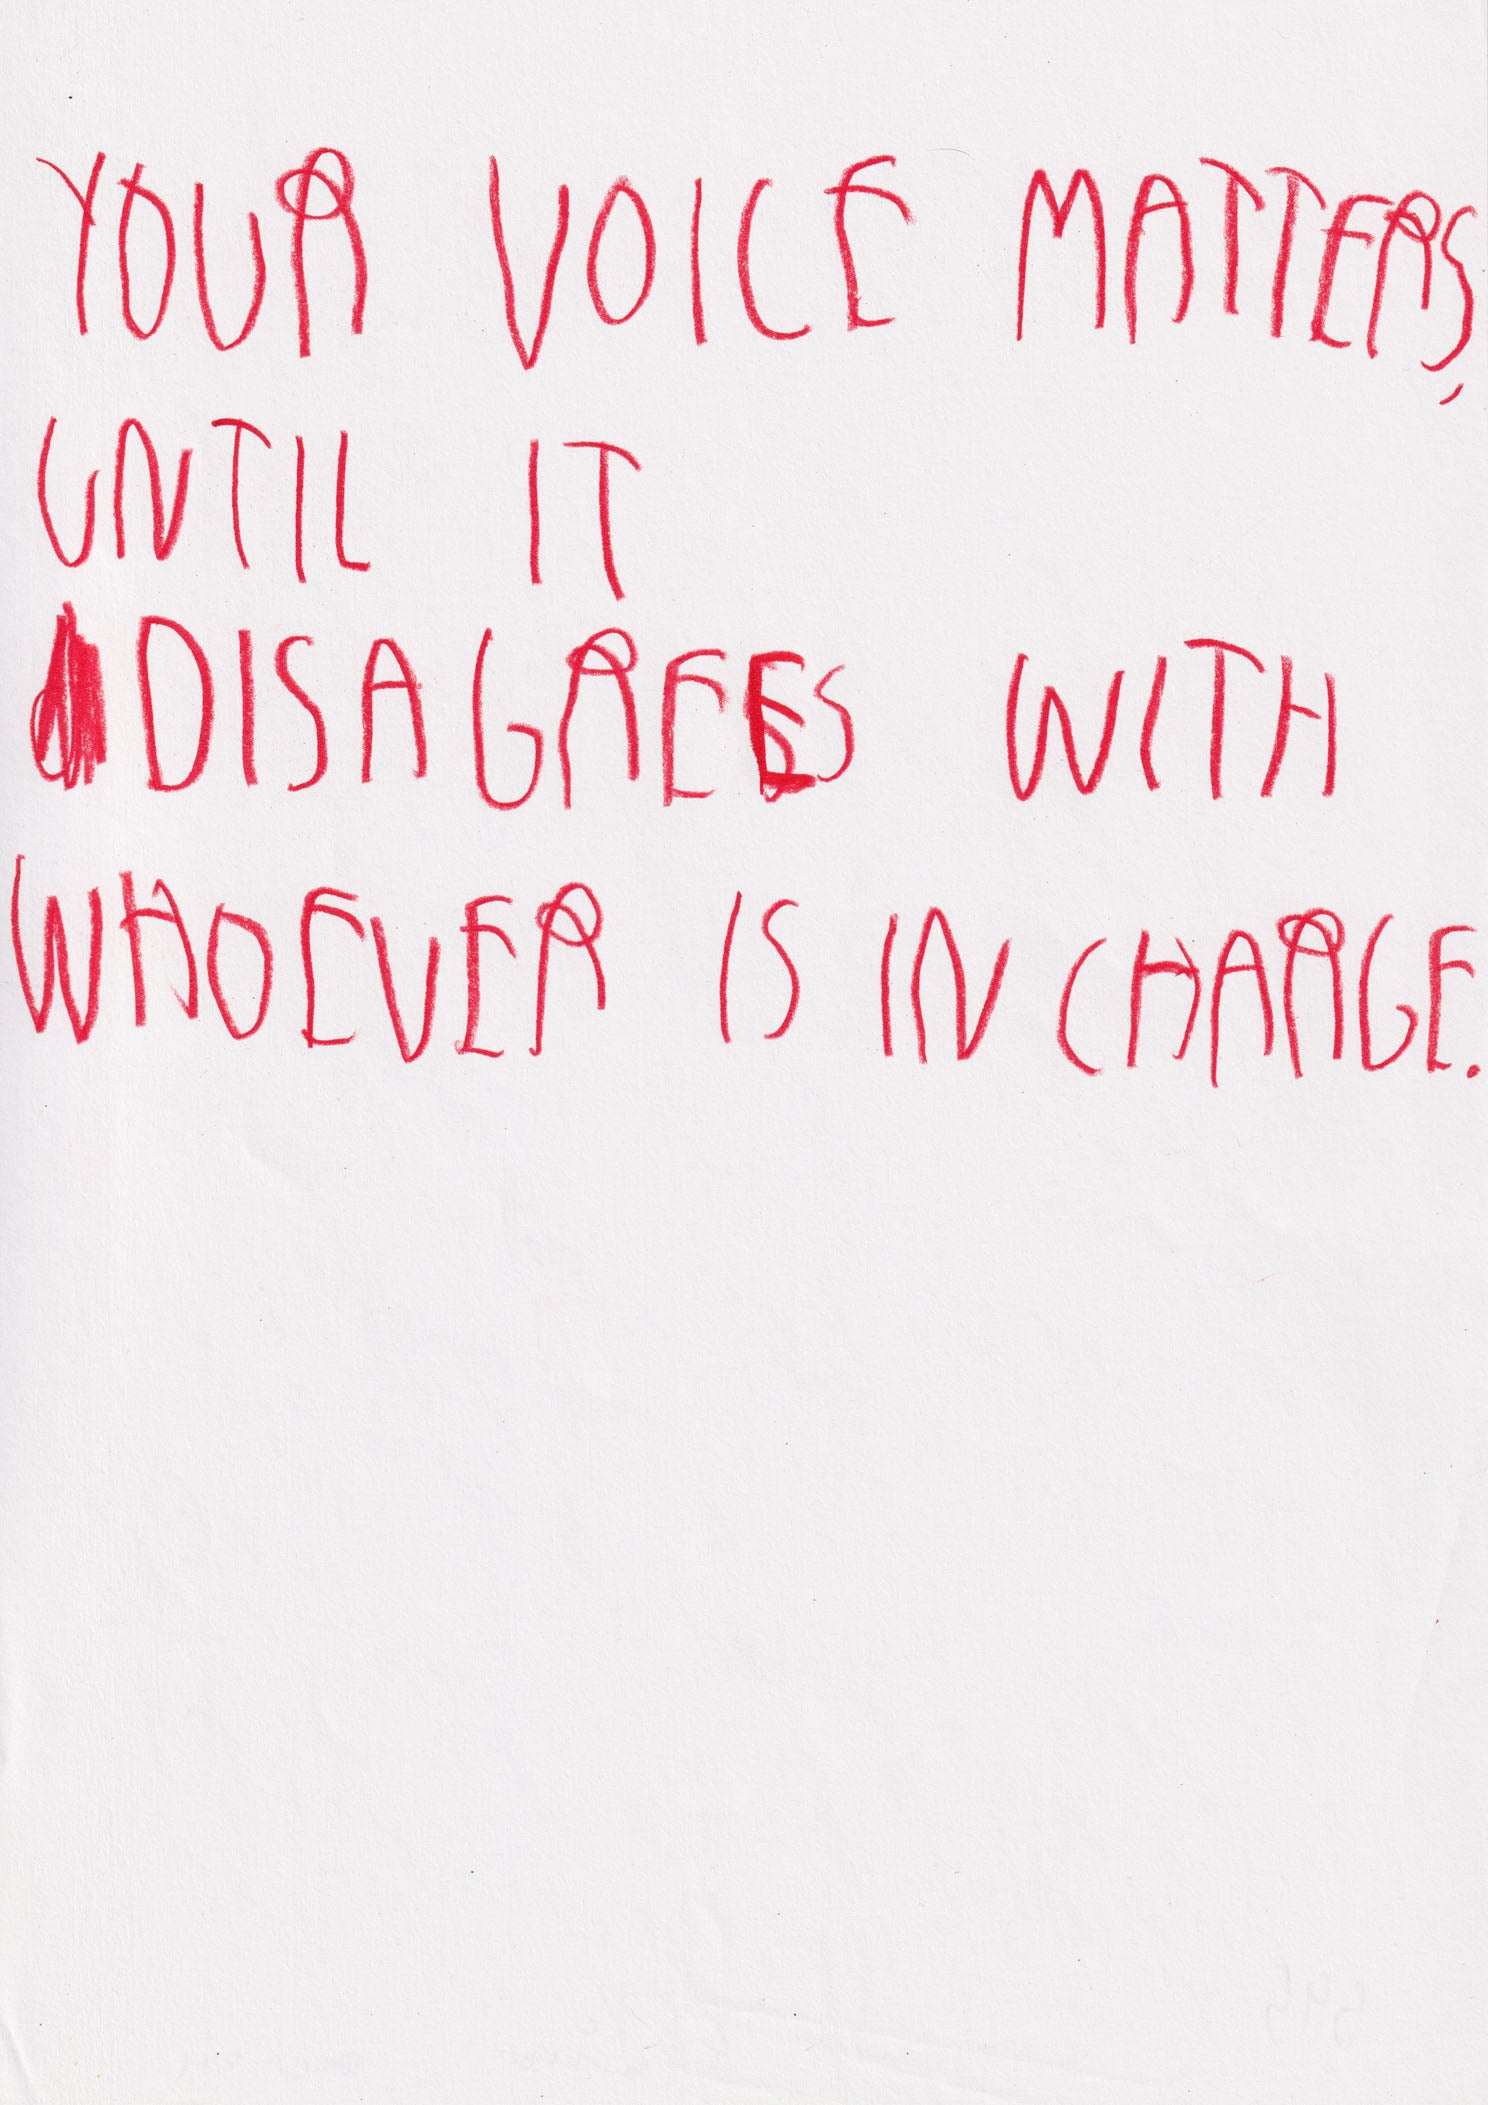 YOUR VOICE MATTERS,
UNTIL IT
DISAGREES WITH
WHOEVER IS IN CHARGE.